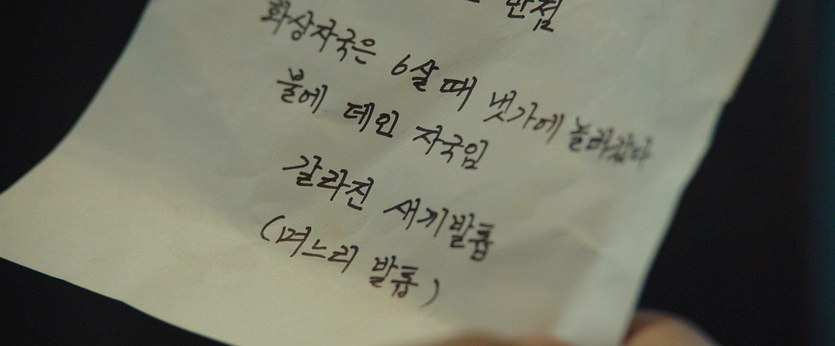 반점
화상자국은 6살 때 냇가에 놀러갔다
불에 데인 자국임
갈라진 새끼발톱
(며느리 발톱)